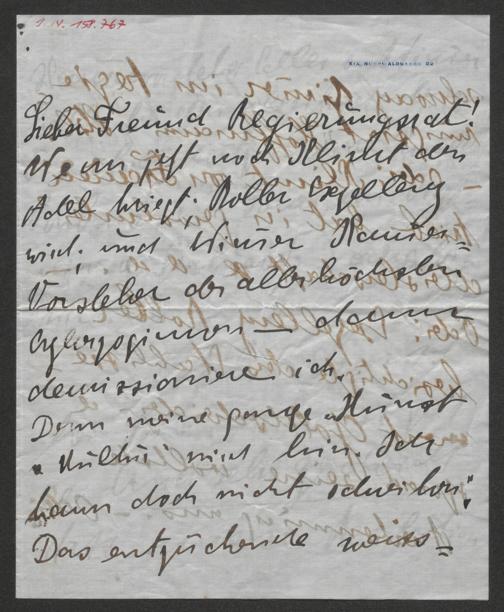 I. N. 158.767
XIX, NUSSWALDGASSE 22
Lieber Freund Regierungsrat!
Wenn jetzt noch Klimt den
Adel kriegt, Roller Exzellenz
wird, und Wimmer Kammer=
Vorsteher der allerhöchsten
— dann
demissioniere ich.
Denn meine ganze „Kunst
„Kultur wird hin. Ich
kann doch nicht schreiben:
Das entzückende weiss=